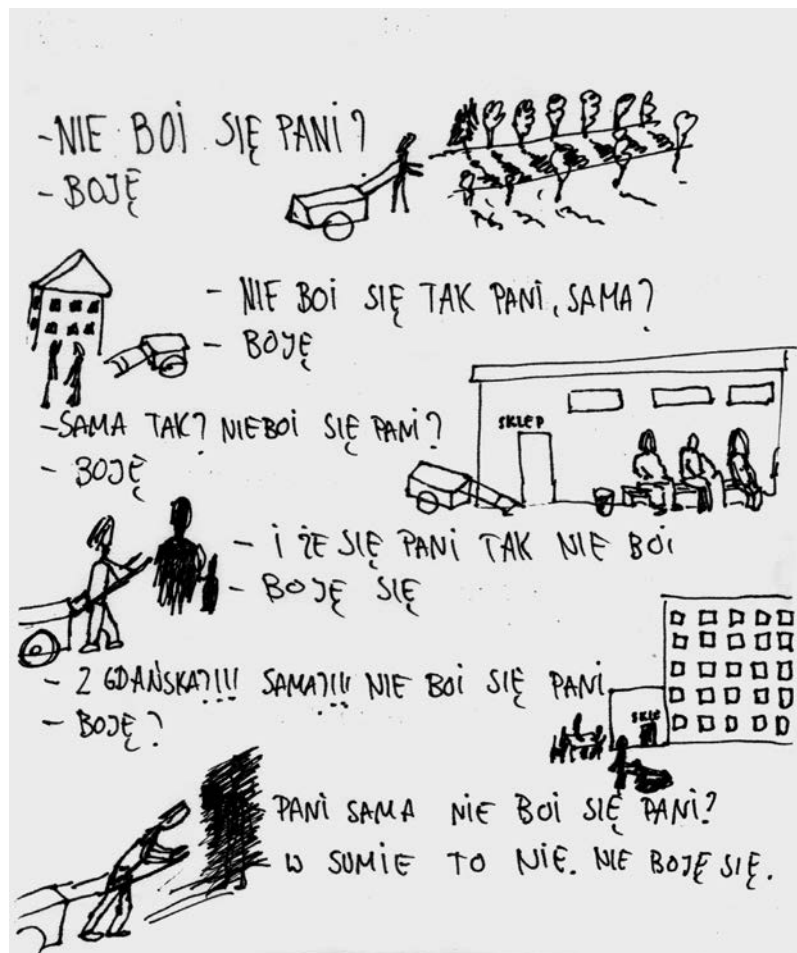 -NIE BOI SIĘ PANI?
- BOJĘ
- NIE BOI SIĘ TAK PANI, SAMA?
- BOJĘ
-SAMA TAK? NIEBOI SIĘ PANI?
- BOJĘ
SKLEP
- I ŻE SIĘ PANI TAK NIE BOI
- BOJĘ SIĘ
- Z GDAŃSKA?!!! SAMA?!!! NIE BOI SIĘ PANI
- BOJĘ?
SKLE
PANI SAMA NIE BOI SIĘ PANI?
- W SUMIE TO NIE. NIE BOJĘ SIĘ.